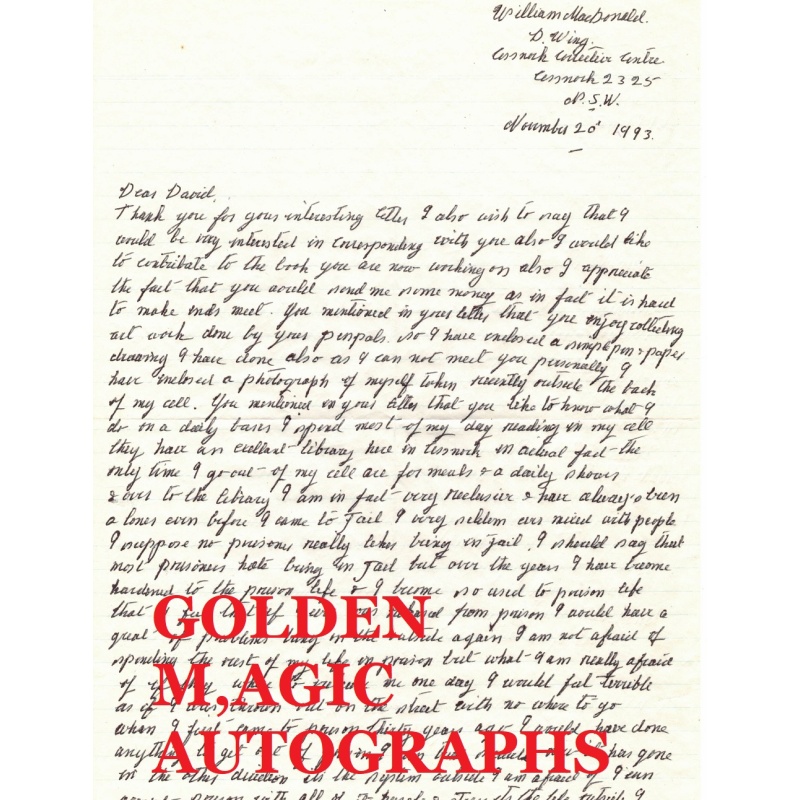 William MacDonald.
D. Wing.
Cessnock Corrective Centre
Cessnock 2325
N.S.W.
November 20th 1993.
Dear David,
Thank you for your interesting letter I also wish to say that I
would be very interested in corresponding with you also I would like
to contribute to the book you are now working on also I appreciate
the fact that you would send me some money as in fact it is hard
to make ends meet. You mentioned in your letter that you enjoy collecting
art work done by your penpals. so I have enclosed a simple pen & paper
drawing I have done also as I can not meet you personally I
have enclosed a photograph of myself taken recently outside the back
of my cell. You mentioned in your letter that you like to know what I
do on a daily bases I spend most of my day reading in my cell
they have an excellant library here in Cessnock in actual fact the
only time I go out of my cell are for meals & a daily shower
& over to the library I am in fact very reclusive & have always been
a loner even before I came to Jail I very seldem ever mixed with people
I suppose no prisoner really likes being in jail, I should say that
most prisoners hate being in Jail but over the years I have become
hardened to the prison life & I become so used to prison life
that I feel that if I ever was released from prison I would have a
great of problems being on the outside again I am not afraid of
spending the rest of my life in prison but what I am really afraid
of is they were to release me one day I would feel terrible
as if I was thrown out on the street with no where to go
when I first came to prison thirty years ago I would have done
anything to get out of prison has gone
in the other direction its the system outside I am afraid of I can
prison with all of the life outside I
GOLDEN
M,AGIC
AUTOGRAPHS